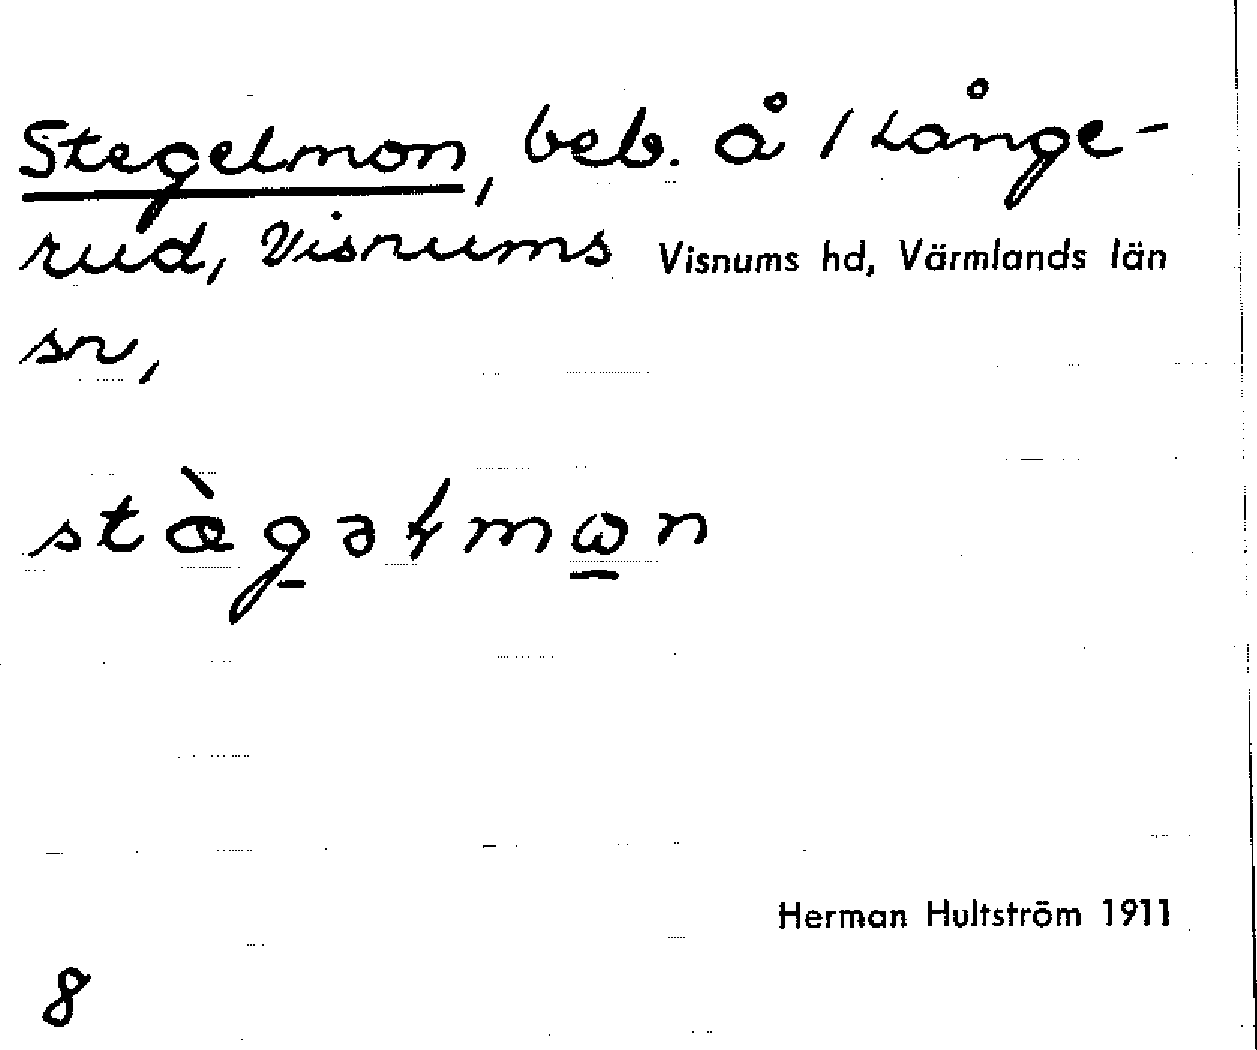 Stegelmon, beb. å 1 Långe-
rud, Visnums Visnums hd, Värmlands län
sn,
stæ̀g̠əɫmω̠n
Herman Hultström 1911
8